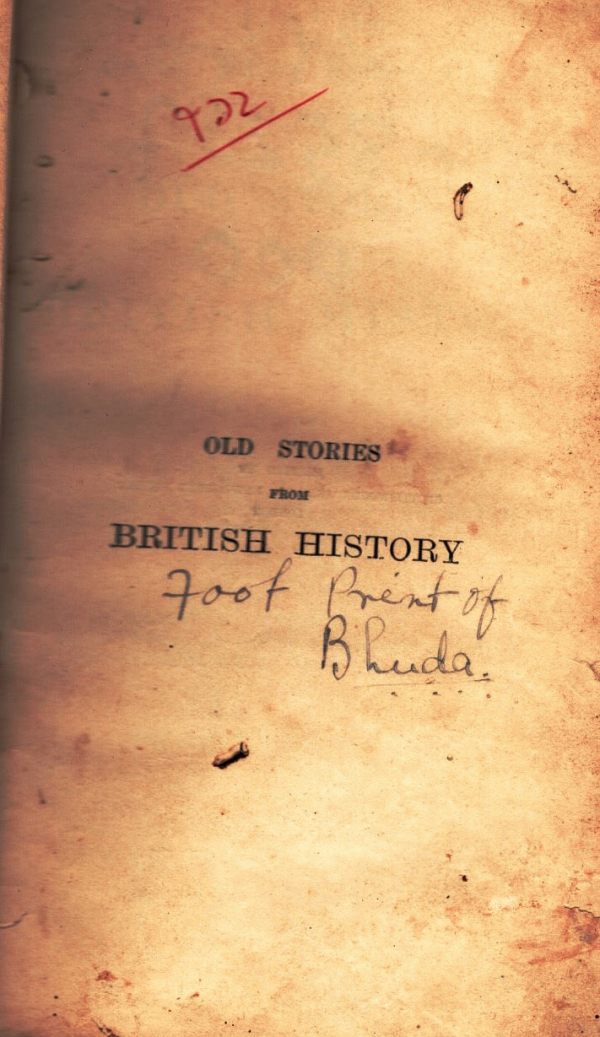 OLD STORIES
FROM
BRITISH HISTORY
Foot Print of
Bhuda.